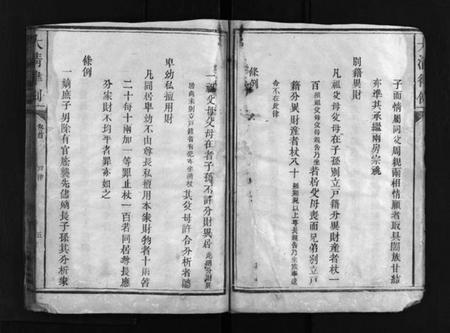 大清律例
子而情屬同父周親兩相情願者取具闔族甘結
亦準其承繼兩房宗祧
別籍異財
凡祖父母父母在子孫別立戶籍分異財產者杖一
百須祖父母父母親告乃坐若居父母喪而兄弟別立戶
籍分異財產者杖八十須期親以上尊長親告乃坐
條例
一祖父母父母在者子孫不許分財異居
其父母許令分析者聽
卑幼私擅用財
凡同居卑幼不由尊長私擅用本家財物者十兩笞
二十每十兩加一等罪止杖一百若同居尊長應
分家財不均平者罪亦如之
條例
一嫡庶子男除有官廕襲先儘嫡長子孫其分析家
大清律例
戶律
五